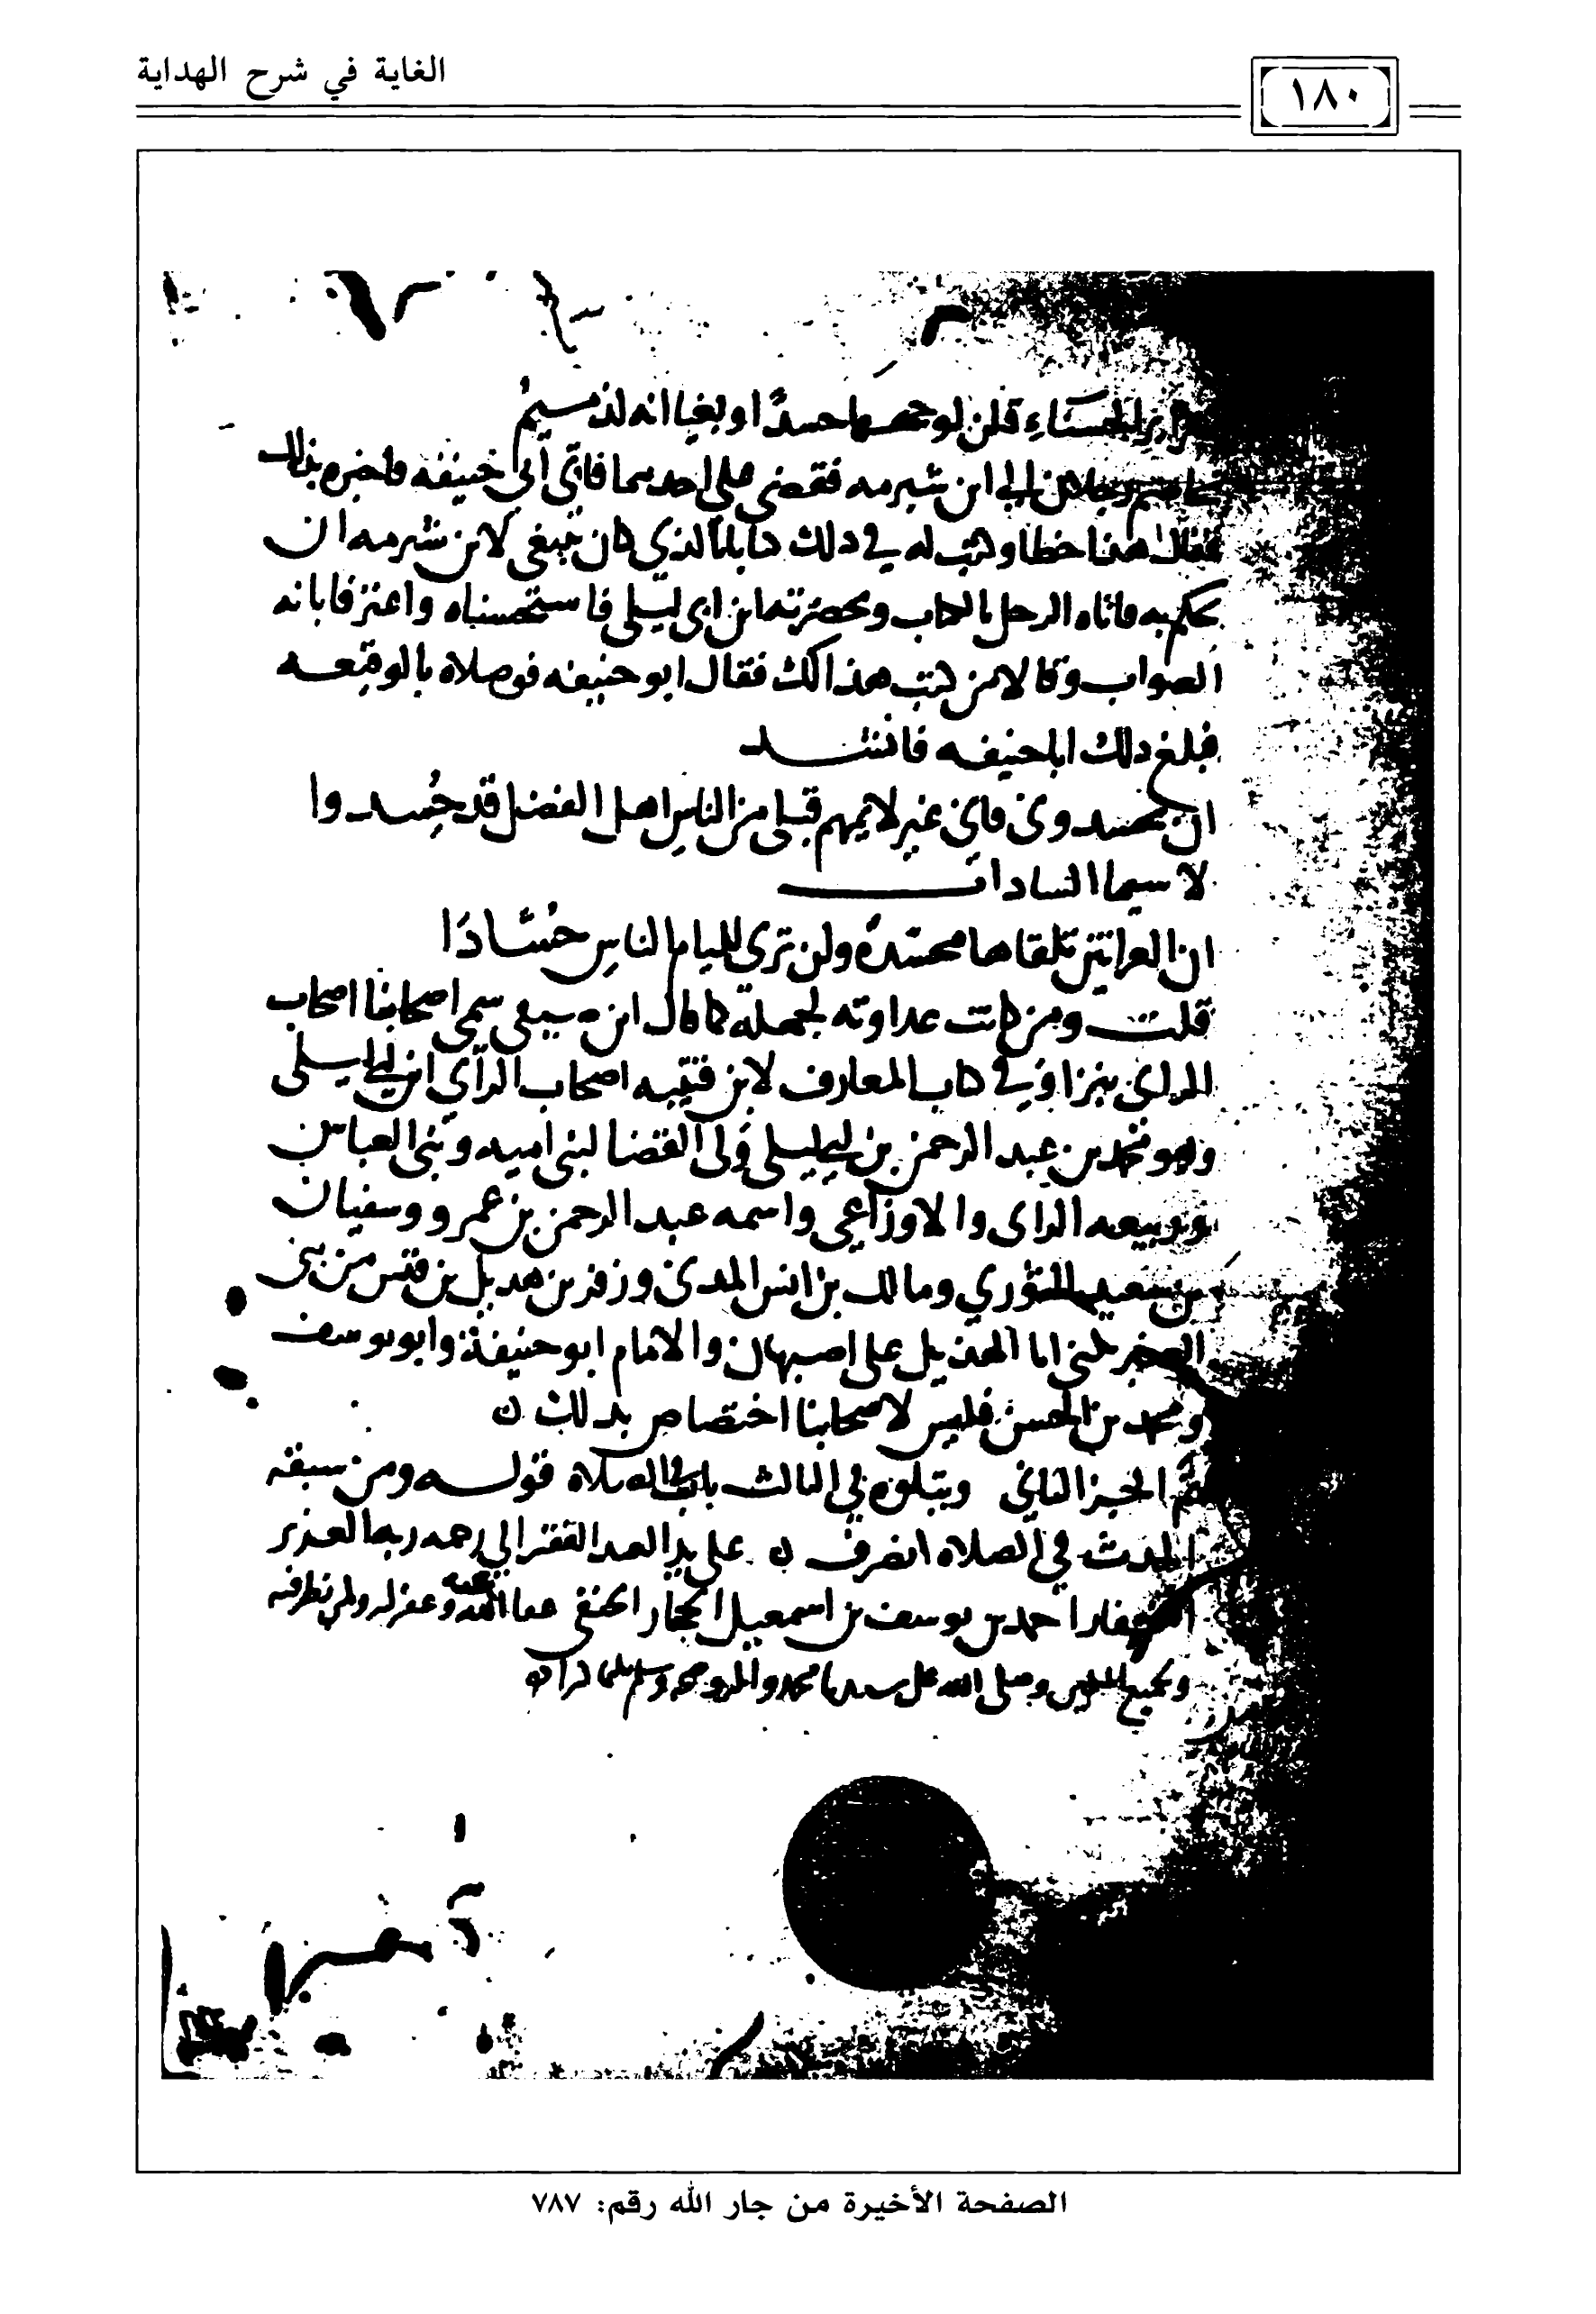 الغاية في شرح الهداية
١٨٠
الحسناء قلن لوجهها حسدًا وبغيا انه لذميمُ
رجلان الى ابن شبرمه فقضى على احدهما فاتى ابي حنيفه فاخبره بذلك
فقال هذا خطا وكتب له في ذلك كتابا الذي كان ينبغي لابن شبرمه ان
يحكم به فاتاه الرجل بالكتاب وبحضرته ابن ابى ليلى فاستحسناه واعترفا بانه
الصواب وقالا من كتب هذا لك فقال ابو حنيفه فوصلاه بالوقيعه
فبلغ ذلك اباحنيفه فانشد
ان يحسدوني فاني غير لايمهم قبلى من الناسِ اهل الفضل قد حُسدوا
لا سيما السادات
ان العرانين تلقاها محسّدةً ولن ترى للئام الناسِ حُسّادَا
قلت ومن كانت عداوته لجهله كما قال ابن سمى اصحابنا اصحاب
الراى وفي كتاب المعارف لابن قتيبه اصحاب الرأي ابن ابي ليلى
وهو محمد بن عبد الرحمن بن ابي ليلى وَلى القضا لبنى اميه وبنى العباس
وربيعه الراى والاوزاعي واسمه عبد الرحمن بن عمرو وسفيان
بن سعيد الثوري ومالك بن انس المدنى وزفر بن هديل بن قيس من بنى
العنبر يكنى ابا الهذيل على اصبهان والامام ابو حنيفة وابو يوسف
ومحمد بن الحسن فليس لاصحابنا اختصاص بذلك ن
تم الجز الثاني ويتلوه في الثالث باب الصلاة قوله ومن سبقه
الحدث في الصلاه انصرف ن على يد العبد الفقير الي رحمه ربه
احمد بن يوسف بن اسمعيل الحنفى عفا الله عنه وغفر له ولمن نظر فيه
ولجميع المسلمين وصلى الله على سيدنا محمد واله وصحبه وسلم
الصفحة الأخيرة من جار الله رقم: ٧٨٧